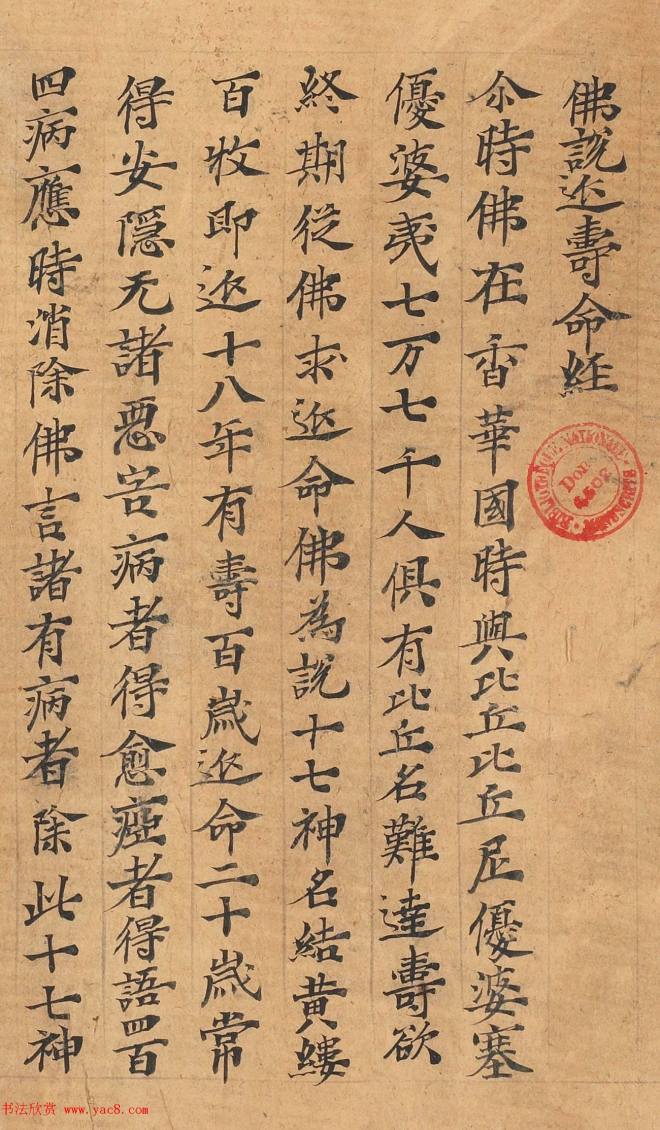 佛說延壽命經
尒時佛在香華國時與比丘比丘尼優婆塞
優婆夷七万七千人俱有比丘名難達壽欲
終期從佛求延命佛為說十七神名結黄縷
百牧即延十八年有壽百歲延命二十歲常
得安隱无諸惡害病者得愈瘂者得語四百
四病應時消除佛言諸有病者除此十七神
BIBLIOTHÈQUE NATIONALE
MANUSCRITS
Don
4502
书法欣赏 www.yac8.com